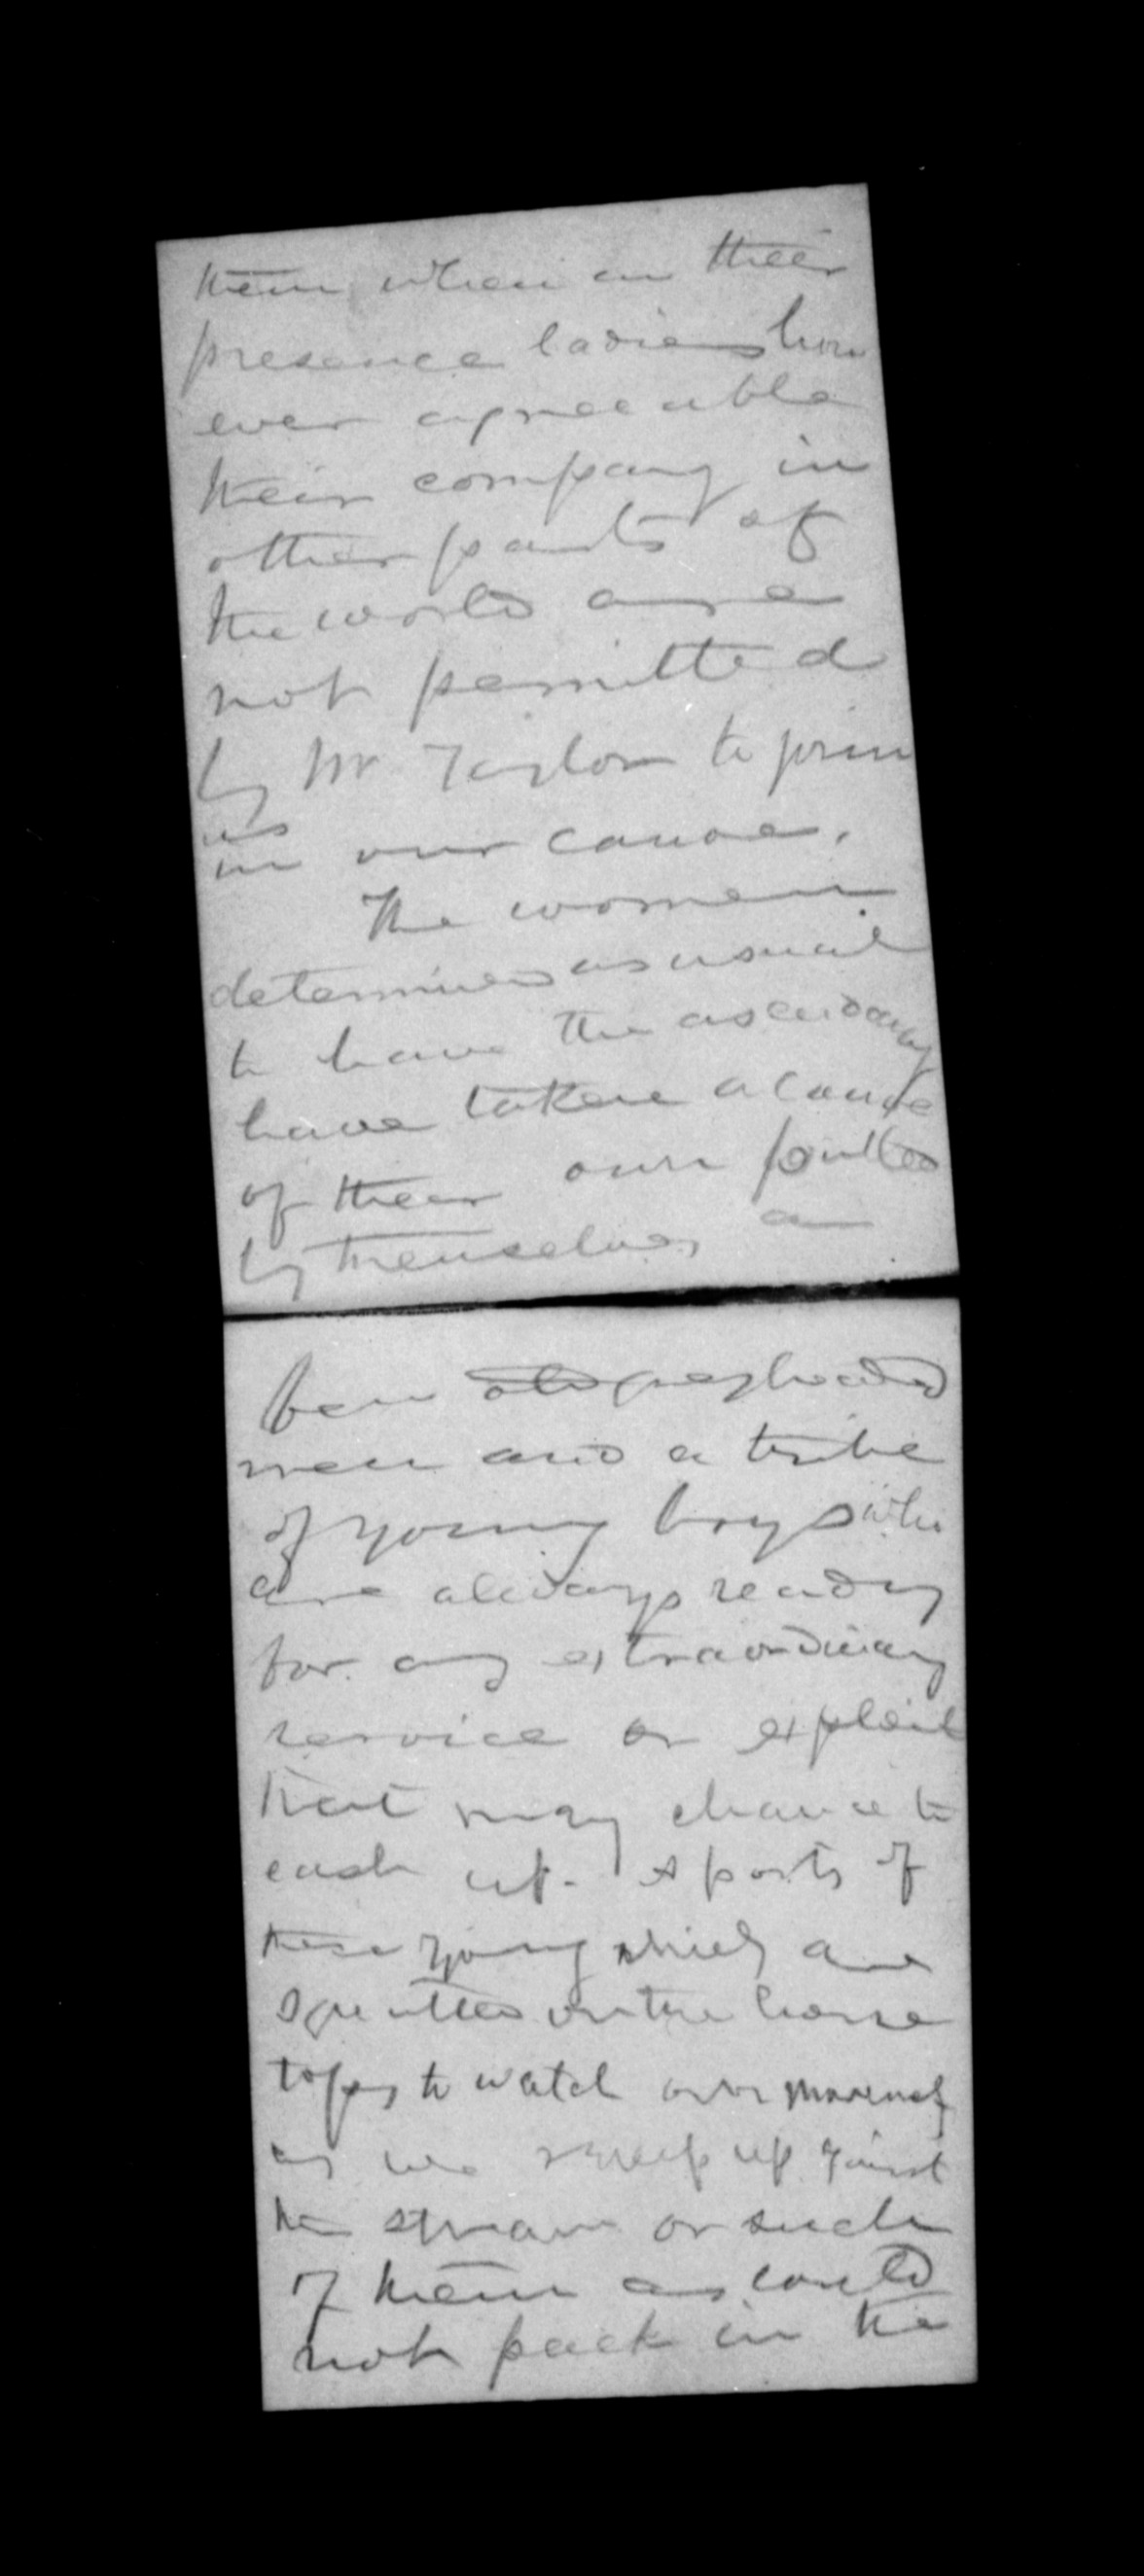 them when in their
presence ladies how
ever agreeable
their company in
other parts of
the world are
not permitted
by Mr Taylor to join
us
in our canoe.
The women
determined as usual
to have the ascendancy
have taken a canoe
of their own pulled
by themselves a
few old greyheaded
men and a tribe
of young boys who
are always ready
for any extraordinary
service or exploit
that may chance to
cast up. sports of
these young are
squatted on the house
tops to watch our
as we sweep up against
the stream or such
of them as could
not pack in the